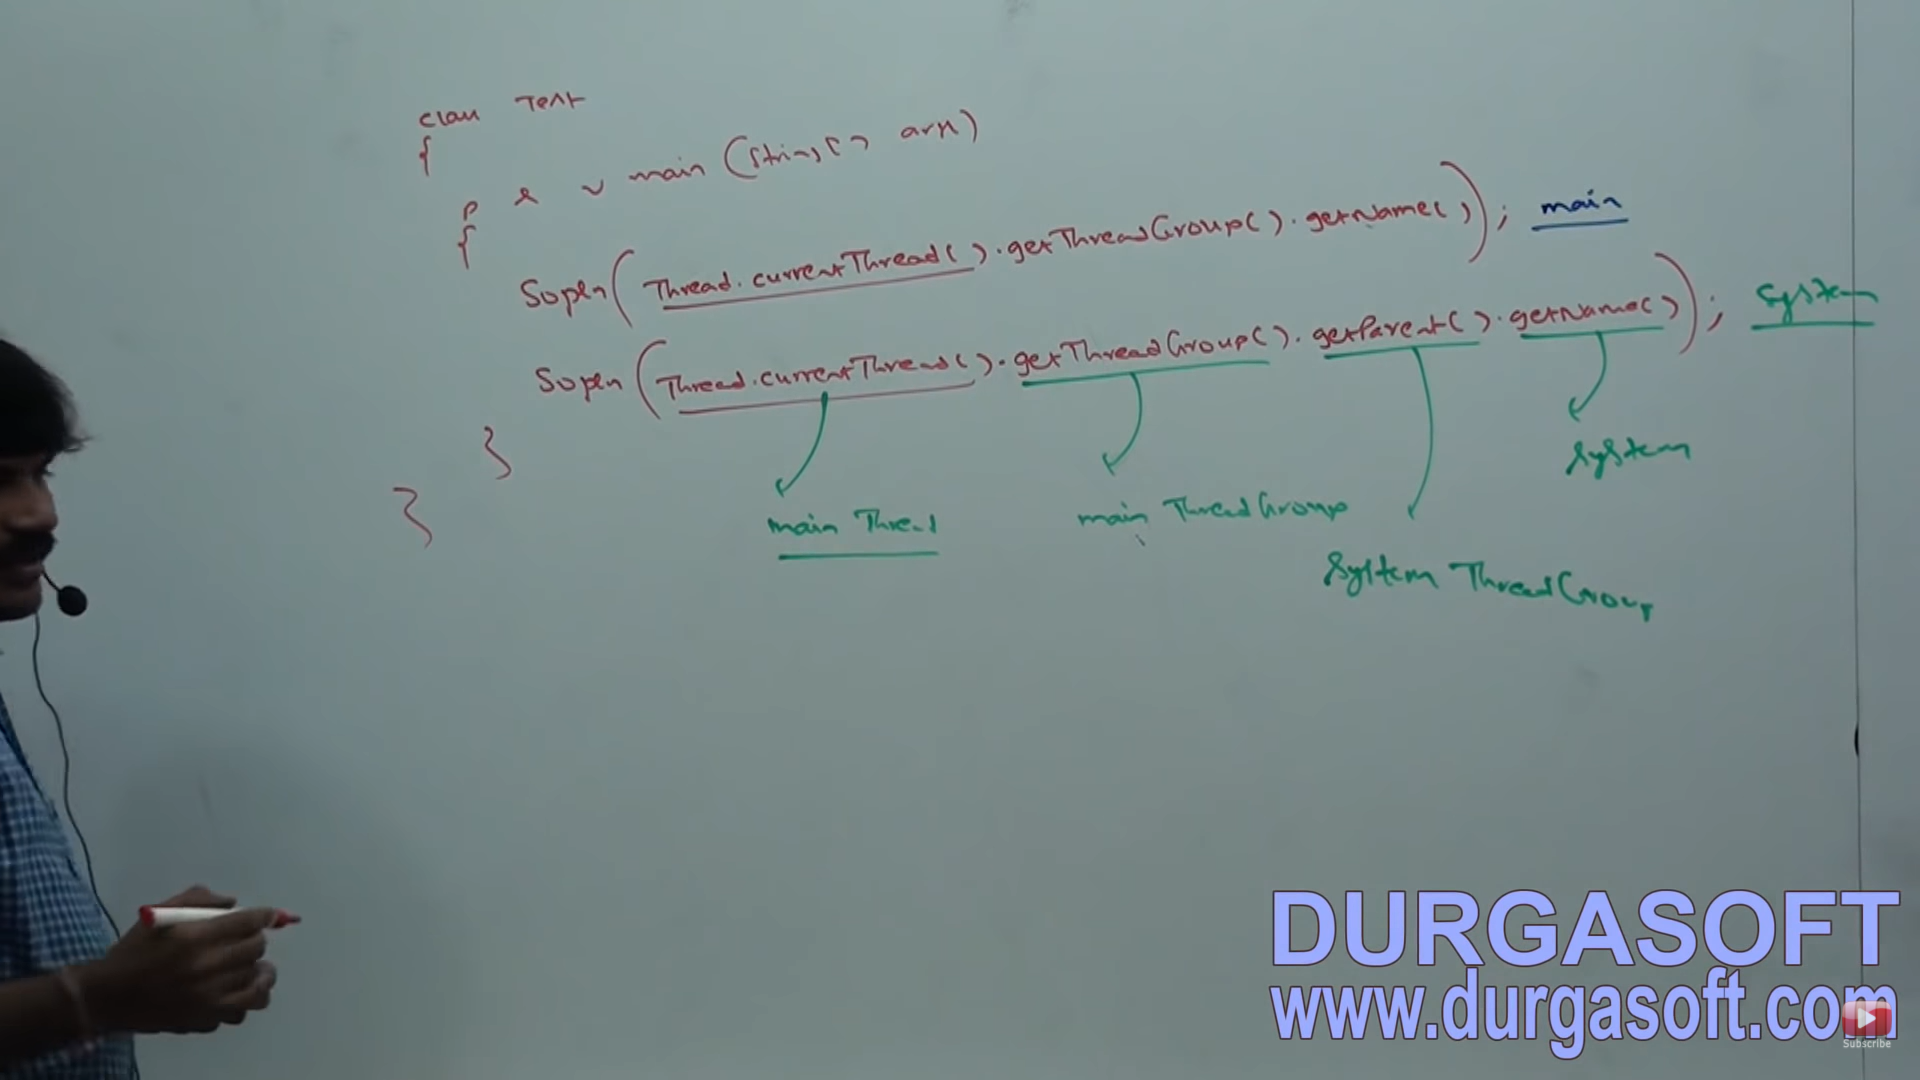 class Test
{
p s v main (String[] args)
{
Sopln(Thread.currentThread().getThreadGroup().getName()); main
Sopln(Thread.currentThread().getThreadGroup().getParent().getName()); System
}
}
system
main Thread
main ThreadGroup
System ThreadGroup
DURGASOFT
www.durgasoft.com
Subscribe